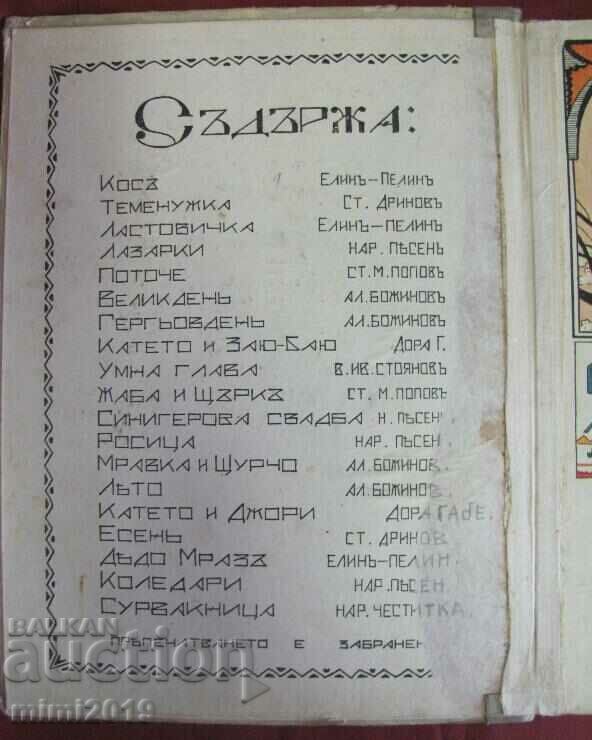 Съдържа:
Косъ Елинъ-Пелинъ
Теменужка Ст. Дриновъ
Ластовичка Елинъ-Пелинъ
Лазарки нар. пѣсень
Поточе Ст. М. Поповъ
Великдень Ал. Божиновъ
Гергьовдень Ал. Божиновъ
Катето и Заю-Баю Дора Г.
Умна глава В. Ив. Стояновъ
Жаба и щъркъ Ст. М. Поповъ
Синигерова свадба н. пѣсень
Росица нар. пѣсен.
Мравка и Щурчо Ал. Божинов.
Лѣто Ал. Божинов.
Катето и Джори Дора Габе.
Есень Ст. Дринов
Дѣдо Мразъ Елинъ-Пелин.
Коледари нар. пѣсен.
Сурвакница нар. честитка.
Прѣпечатването е забранен
БАЛКАН
auction
mimi2019